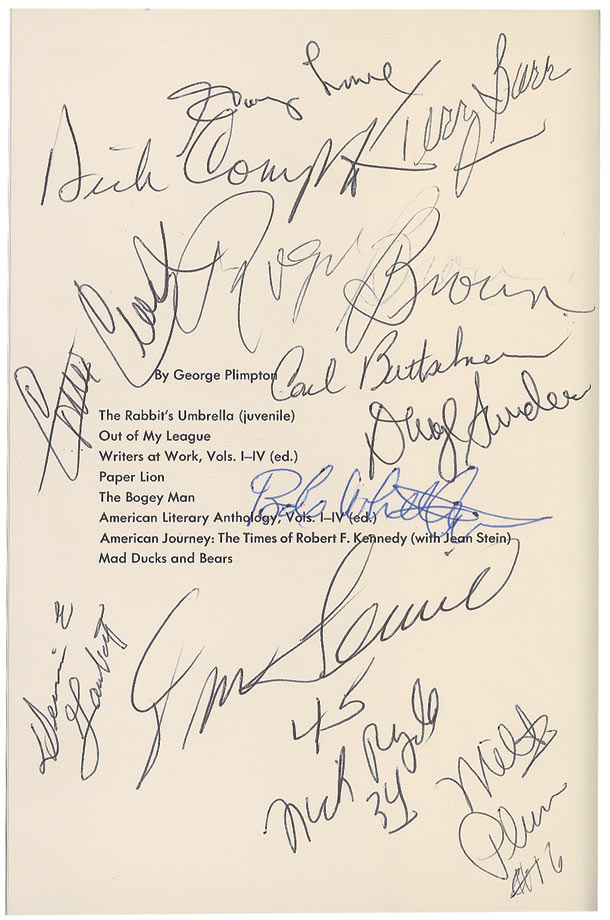 Gary Lowe
Terry Barr
Dick Compt
Roger Brown
Carl Brettschneider
By George Plimpton
Doug
The Rabbit's Umbrella (juvenile)
Out of My League
Writers at Work, Vols. I–IV (ed.)
Paper Lion
The Bogey Man
Bob Whitlow
American Literary Anthology, Vols. I–IV (ed.)
American Journey: The Times of Robert F. Kennedy (with Jean Stein)
Mad Ducks and Bears
Dennis
Gaubatz
45
Nick Ryder
34
Milt
Plum
#16